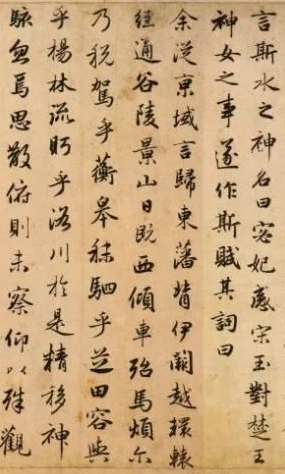 言斯水之神名曰宓妃感宋玉對楚王
神女之事遂作斯賦其詞曰
余從京域言歸東藩背伊闕越轘轅
經通谷陵景山日既西傾車殆馬煩尔
乃稅駕乎蘅皋秣駟乎芝田容與
乎楊林流眄乎洛川於是精移神
駭忽焉思散俯則未察仰以殊觀